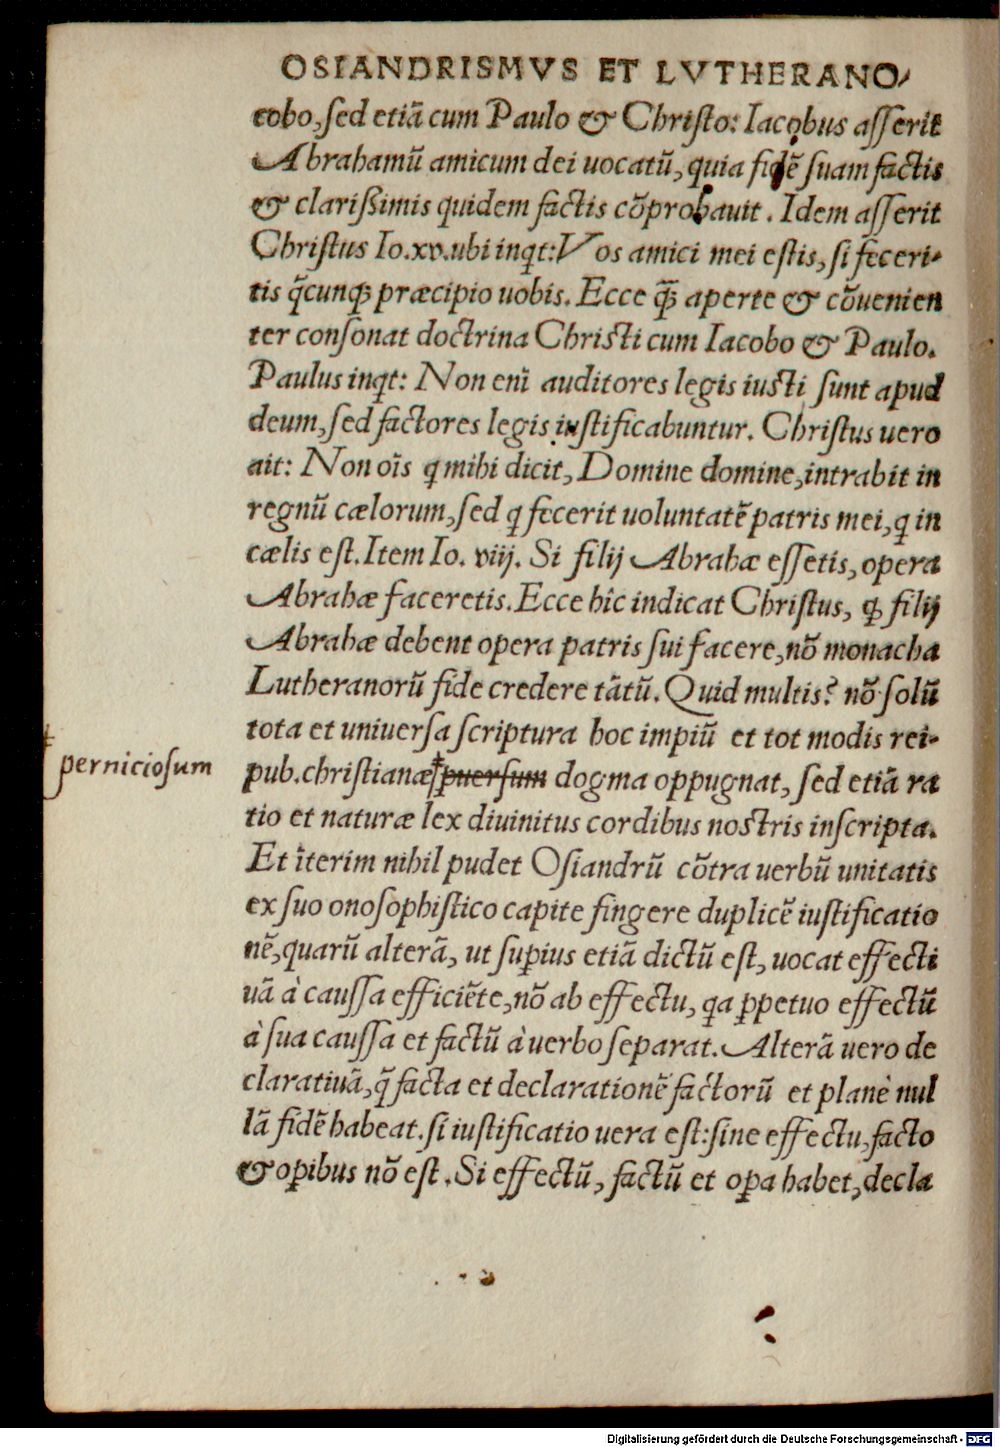 OSIANDRISMVS ET LVTHERANO⸗
cobo, sed etiã cum Paulo & Christo: Iacobus asserit
Abrahamũ amicum dei uocatũ, quia fidẽ suam factis
& clarißimis quidem factis cõprobauit. Idem asserit
Christus Io.xv.ubi inqt: Vos amici mei estis, si feceri⸗
tis q̃cunqꝫ præcipio uobis. Ecce q̃ꝫ aperte & cõuenien
ter consonat doctrina Christi cum Iacobo & Paulo.
Paulus inqt: Non enĩ auditores legis iusti sunt apud
deum, sed factores legis iustificabuntur. Christus uero
ait: Non oĩs q mihi dicit, Domine domine, intrabit in
regnũ cælorum, sed q fecerit uoluntatẽ patris mei, q in
cælis est. Item Io. viij. Si filij Abrahæ essetis, opera
Abrahæ faceretis. Ecce hîc indicat Christus, qꝫ filij
Abrahæ debent opera patris sui facere, nõ monacha
Lutheranorũ fide credere tãtũ. Quid multis? nõ solũ
tota et uniuersa scriptura hoc impiũ et tot modis rei⸗
perniciosum
pub. christianæ puersum dogma oppugnat, sed etiã ra
tio et naturæ lex diuinitus cordibus nostris inscripta.
Et ĩterim nihil pudet Osiandrũ cõtra uerbũ unitatis
ex suo onosophistico capite fingere duplicẽ iustificatio
nẽ, quarũ alterã, ut suꝑius etiã dictũ est, uocat effecti
uã à caussa efficiẽte, nõ ab effectu, qa ꝑpetuo effectũ
à sua caussa et factũ à uerbo separat. Alterã uero de
claratiuã, q̃ facta et declarationẽ factorũ et planè nul
lã fidẽ habeat. si iustificatio uera est: sine effectu, facto
& oꝑibus nõ est. Si effectũ, factũ et oꝑa habet, decla
Digitalisierung gefördert durch die Deutsche Forschungsgemeinschaft - DFG